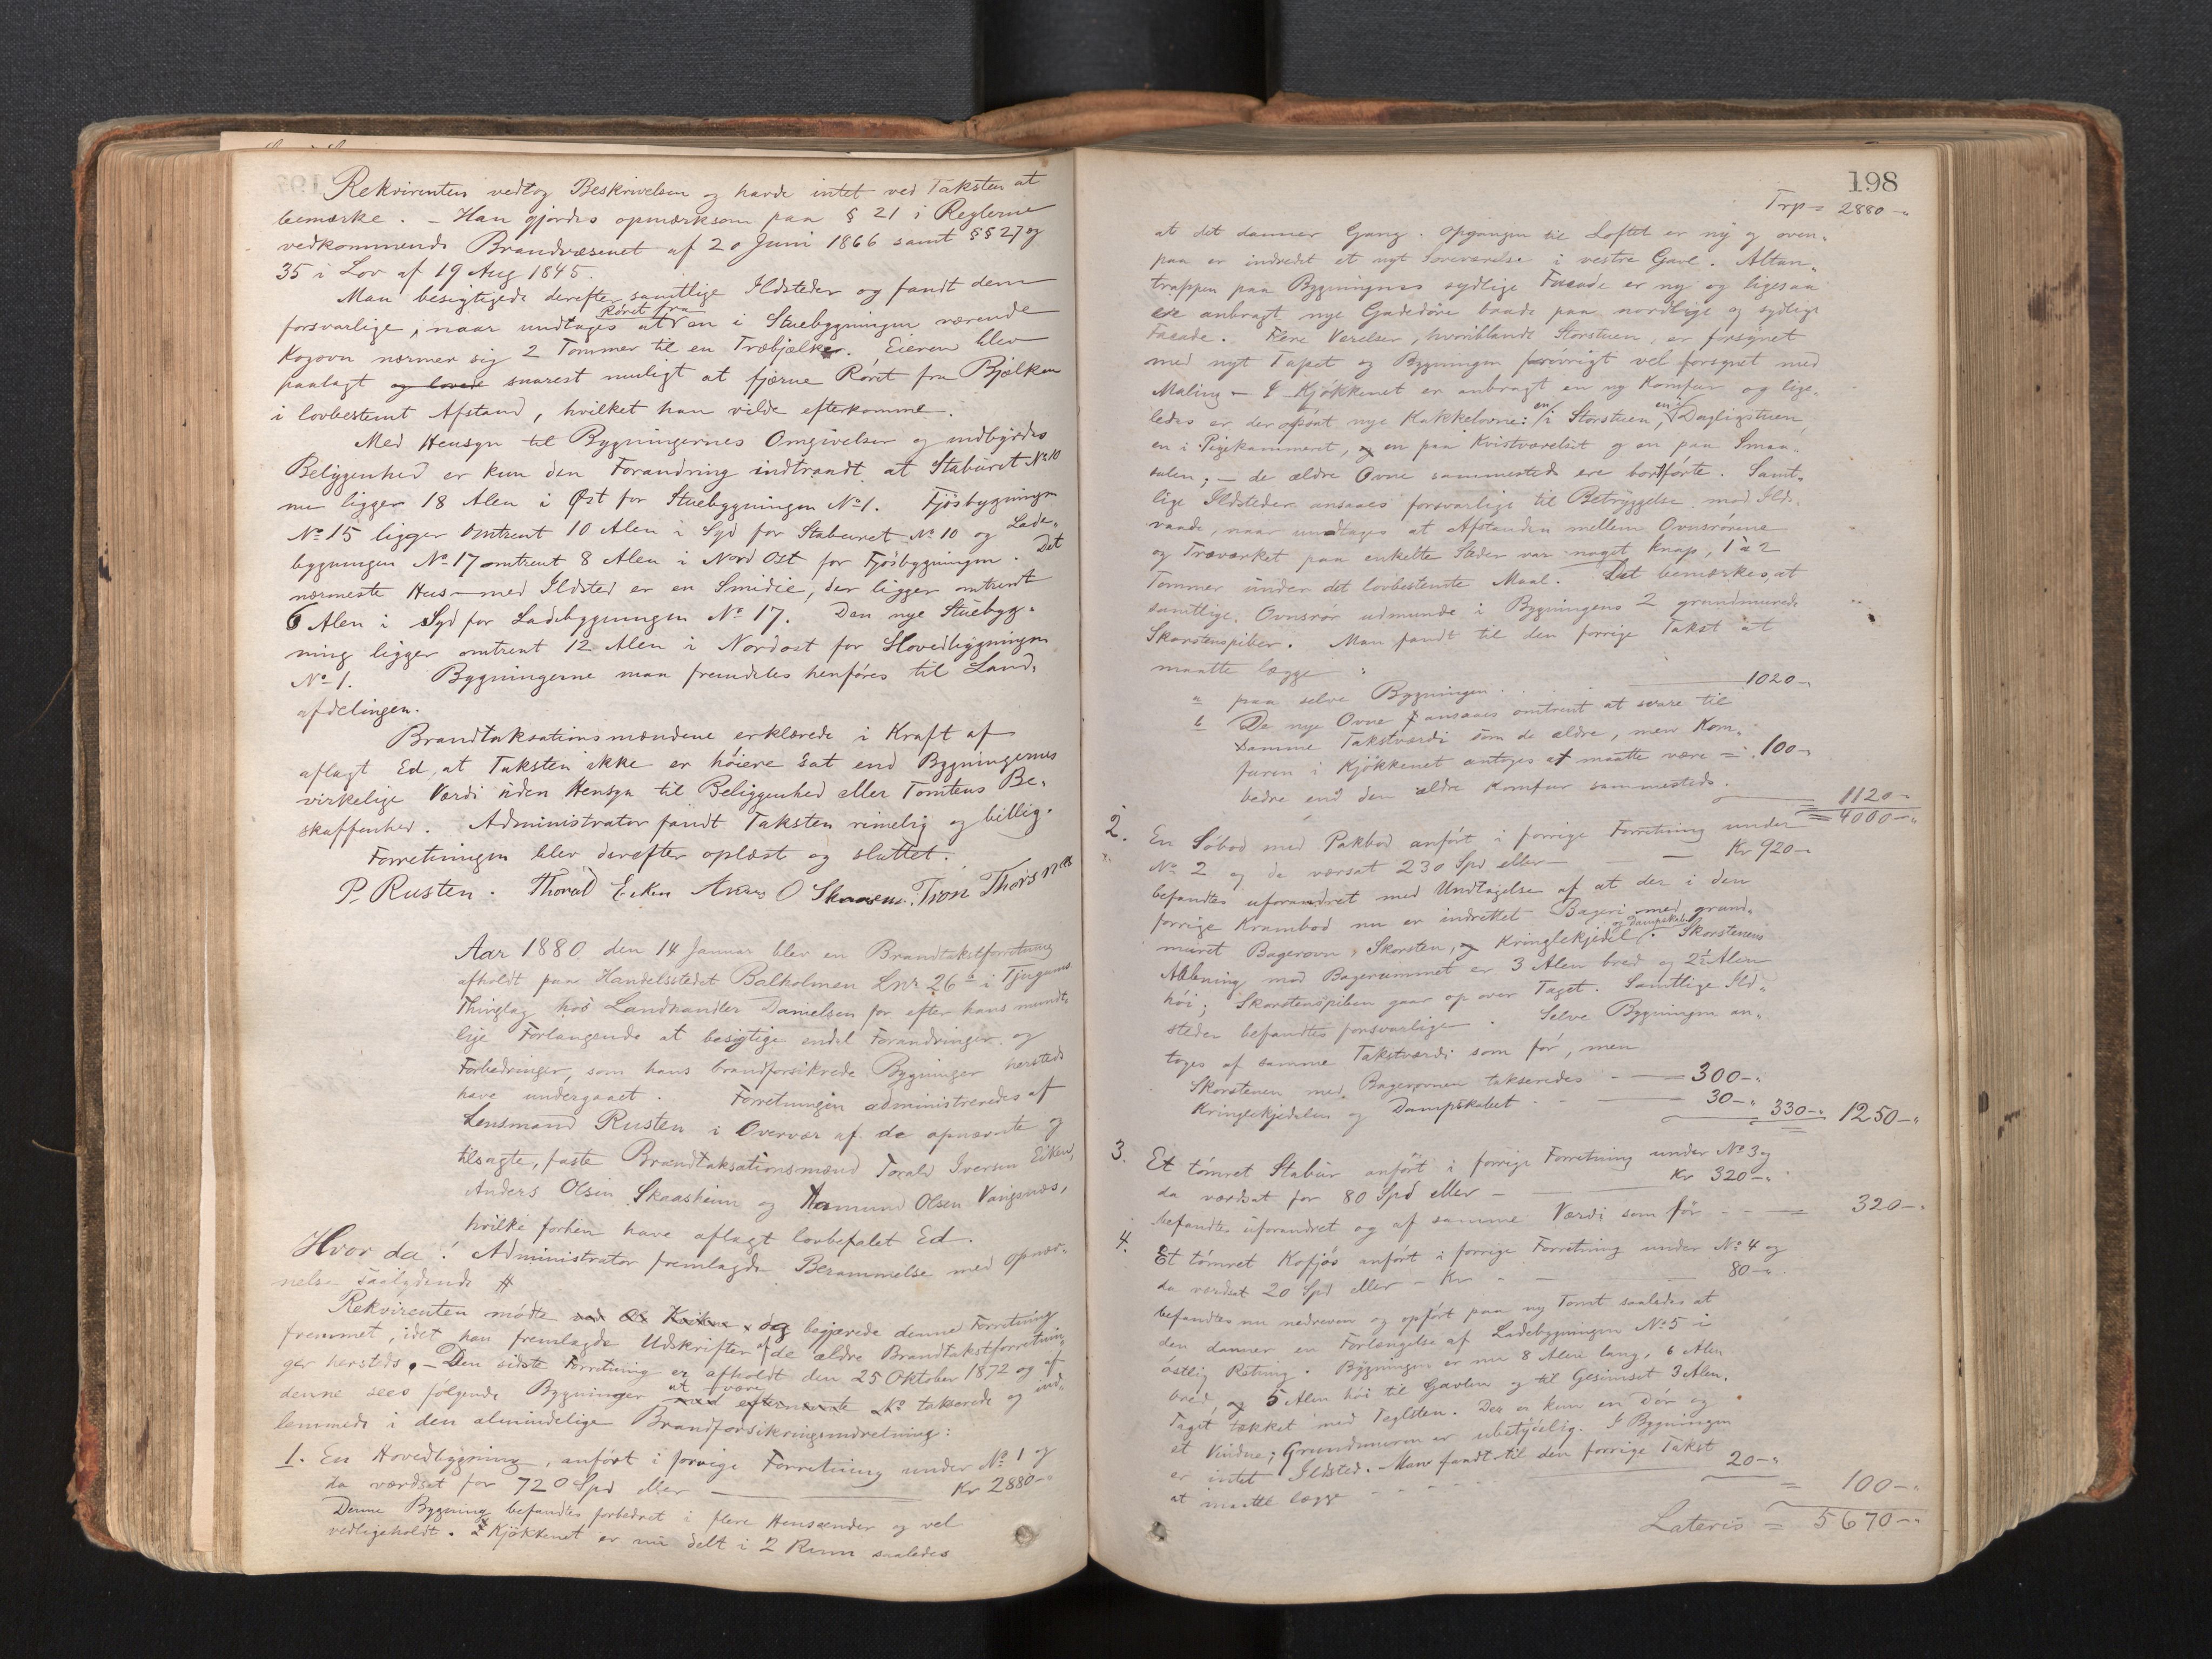 Rekvirenten vedtog Beskrivelsen og havde intet ved Taksten at
bemærke. – Han gjordes opmærksom paa § 21 i Reglerne
vedkommende Brandvæsenet af 20 Juni 1866 samt §§ 27 og
35 i Lov af 19 Aug 1845.
Man besigtigede derefter samtlige Ildsteder og fandt dem
forsvarlige, naar undtages at Røret fra en i Stuebygningen værende
Kogovn nærmer sig 2 Tommer til en Træbjælke. Eieren blev
paalagt og lovede snarest muligt at fjærne Røret fra Bjælken
i lovbestemt Afstand, hvilket han vilde efterkomme.
Med Hensyn til Bygningernes Omgivelser og indbyrdes
Beliggenhed er kun den Forandring indtraadt at Staburet No 10
nu ligger 18 Alen i Øst for Stuebygningen No 1. Fjøsbygningen
No 15 ligger omtrent 10 Alen i Syd for Staburet No 10 og Lade-
bygningen No 17 omtrent 8 Alen i Nord Ost for Fjøsbygningen. Det
nærmeste Hus med Ildsted er en Smidie, der ligger omtrent
6 Alen i Syd for Ladebygningen No 17. Den nye Stuebyg-
ning ligger omtrent 12 Alen i Nordost for Hovedbygningen
No 1. Bygningerne maa fremdeles henføres til Land-
afdelingen.
Brandtaksationsmændene erklærede i Kraft af
aflagt Ed, at Taksten ikke er høiere sat end Bygningernes
virkelige Værdi uden Hensyn til Beliggenhed eller Tomtens Be-
skaffenhed. Administrator fandt Taksten rimelig og billig.
Forretningen blev derefter oplæst og sluttet.
P. Rusten. Thorald Eeken Anders O Skaasem. Tron Thorsnes
Aar 1880 den 14 Januar blev en Brandtakstforretning
afholdt paa Handelsstedet Balholmen Lnr 26a i Tjugums
Thinglag hos Landhandler Danielsen for efter hans mundt-
lige Forlangende at besigtige endel Forandringer og
Forbedringer, som hans brandforsikrede Bygninger hersteds
have undergaaet. Forretningen administreredes af
Lensmand Rusten i Overvær af de opnævnte og
tilsagte, faste Brandtaksationsmænd Torald Iversen Eiken,
Anders Olsen Skaasheim og Aamund Olsen Vangsnæs,
hvilke forhen have aflagt lovbefalet Ed.
Hvor da! Administrator fremlagde Berammelse med opnæv-
nelse saalydende #
Rekvirenten mødte og begjærede denne Forretning
fremmet, idet han fremlagde Udskrifter af de ældre Brandtakstforretnin-
ger hersteds. – Den sidste Forretning er afholdt den 25 Oktober 1872 og af
denne sees følgende Bygninger at være med efternævnte No takserede og ind-
lemmede i den almindelige Brandforsikringsindretning:
1. En Hovedbygning, anført i forrige Forretning under No 1 og
da værdsat for 720 Spd eller Kr 2880-"
Denne Bygning befandtes forbedret i flere Henseender og vel
vedligeholdt. Kjøkkenet er nu delt i 2 Rum saaledes
198
Trp = 2880-"
at det danner Gang. Opgangen til Loftet er ny og oven-
paa er indredet et nyt Soveværelse i vestre Gavl. Altan-
trappen paa Bygningens sydlige Facade er ny og ligesaa
ere anbragt nye Gadedøre baade paa nordlige og sydlige
Facade. Flere Værelser, hvoriblandt Storstuen, er forsynet
med nyt Tapet og Bygningen forøvrigt vel forsynet med
Maling – I Kjøkkenet er anbragt en ny Komfur og lige-
ledes er der opsat nye Kakkelovne: en i Storstuen, en i Dagligstuen,
en i Pigekammeret, og en paa Kvistværelset og en paa Smaa-
salen; – de ældre Ovne sammesteds ere bortførte. Samt-
lige Ildsteder ansaaes forsvarlige til Betryggelse mod Ild-
vaade, naar undtages at Afstanden mellem Ovnsrørene
og Træværket paa enkelte Steder var noget knap, 1 a 2
Tommer under det lovbestemte Maal. Det bemærkes, at
samtlige Ovnsrør udmunde i Bygningens 2 grundmurede
Skorstenspiber. Man fandt til den forrige Takst at
maatte lægge:
a paa selve Bygningen. 1020-"
b De nye Ovne ansaaes omtrent at svare til
samme Takstværdi som de ældre, men Kom-
furen i Kjøkkenet antoges at maatte være = 100-"
bedre end den ældre Komfur sammesteds. 1120-"
= 4000-"
2. En Søbod med Pakbod anført i forrige Forretning under
No 2 og da værdsat 230 Spd eller Kr 920-"
befandtes uforandret med Undtagelse af at der i den
forrige Krambod nu er indrettet Bageri med grund-
muret Bagerovn, Skorsten, og Kringlekjedel og Dampskab. Skorstenens
Aabning mod Bagerummet er 3 Alen bred og 2½ Alen
høi; Skorstenspiben gaar op over Taget. Samtlige Ild-
steder befandtes forsvarlige. Selve Bygningen an-
toges af samme Takstværdi som før, men
Skorstenen med Bagerovnen takseredes 300-"
Kringlekjedelen og Dampskabet 30-" 330-" 1250-"
3. Et tømret Stabur anført i forrige Forretning under No 3 og
da værdsat for 80 Spd eller Kr 320-"
befandtes uforandret og af samme Værdi som før = 320-"
4. Et tømret Kofjøs anført i forrige Forretning under No 4 og
da værdsat 20 Spd eller – Kr 80-"
befandtes nu nedreven og opført paa ny Tomt saaledes at
den danner en Forlængelse af Ladebygningen No 5 i
østlig Retning. Bygningen er nu 8 Alen lang, 6 Alen
bred, og 5 Alen høi til Gavlen og til Gesimset 3 Alen.
Taget tækket med Teglsten. Der er kun en Dør og
et Vindue; Grundmuren er ubetydelig. I Bygningen
er intet Ildsted. – Man fandt til den forrige Takst
at maatte lægge 20-" = 100-"
Lateris = 5670-"